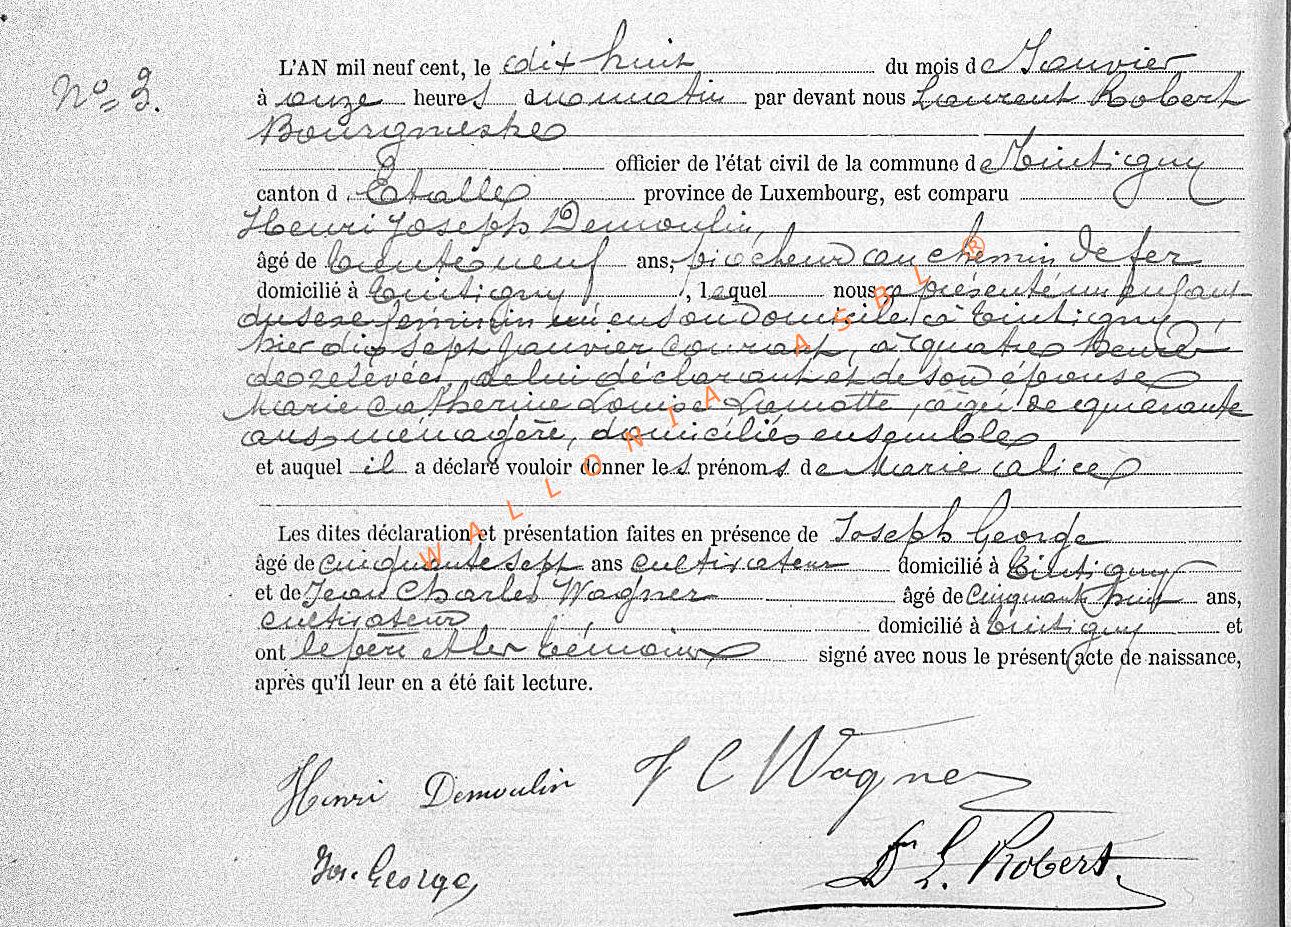 L'AN mil neuf cent, le dix huit du mois de Janvier
N° 3.
à onze heures du matin par devant nous Laurent Robert
Bourgmestre
officier de l'état civil de la commune de Tintigny
canton d'Etalle province de Luxembourg, est comparu
Henri Joseph Demoulin,
âgé de trente neuf ans, piocheur au chemin de fer
domicilié à Tintigny, lequel nous a présenté un enfant
du sexe féminin né en son Domicile à Tintigny,
hier dix sept Janvier courant, à quatre heures
de relevée, de lui déclarant et de son épouse
Marie Catherine Louise Lamotte, agée de quarante
ans, ménagère, domiciliés ensemble
et auquel il a déclaré vouloir donner les prénoms de Marie Alice
Les dites déclaration et présentation faites en présence de Joseph George
âgé de cinquante sept ans cultivateur domicilié à Tintigny
et de Jean Charles Wagner âgé de cinquant huit ans,
cultivateur domicilié à Tintigny et
ont le père et les témoins signé avec nous le présent acte de naissance,
après qu'il leur en a été fait lecture.
Henri Demoulin J C Wagner
Jos. George Dr L. Robert.
WALLONIA ASBL ®